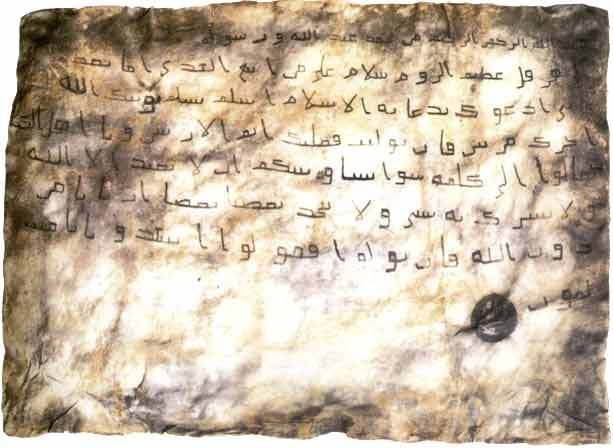 بسم الله الرحمن الرحيم من محمد عبد الله ورسوله
هرقل عظيم الروم سلام على من اتبع الهدى اما بعد
فانى ادعوك بدعايه الاسلام اسلم تسلم يوتك الله
اجرك مرتين فان توليت فعليك اثم الاريسين ويا اهل الكتاب
تعالوا الى كلمه سوا بيننا وبينكم ان لا نعبد الا الله
ولا نشرك به شى ولا يتخذ بعضنا بعضا اربابا من
دون الله فان تولوا فقولوا اشهدوا بانا مسـ
ـلمون